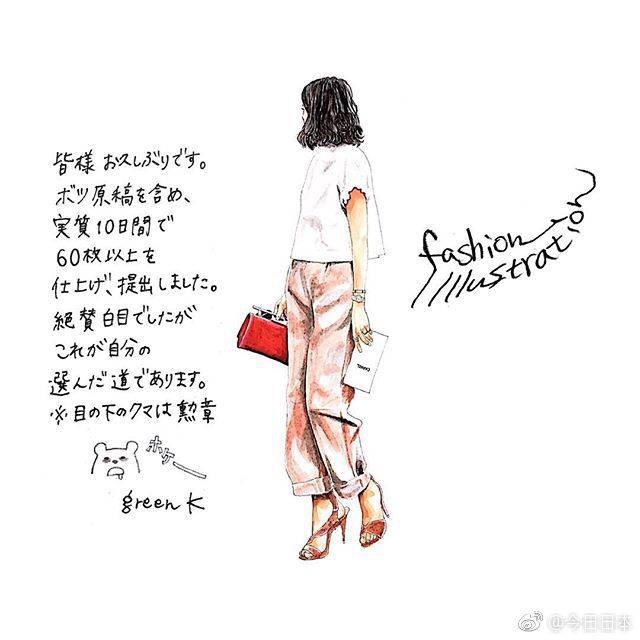 皆様 お久しぶりです。
ボツ原稿を含め、
実質10日間で
60枚以上を
仕上げ、提出しました。
絶賛 白目でしたが
これが自分の
選んだ道であります。
※目の下のクマは勲章
ホゲー
green K
fashion
Illustration
@今日日本